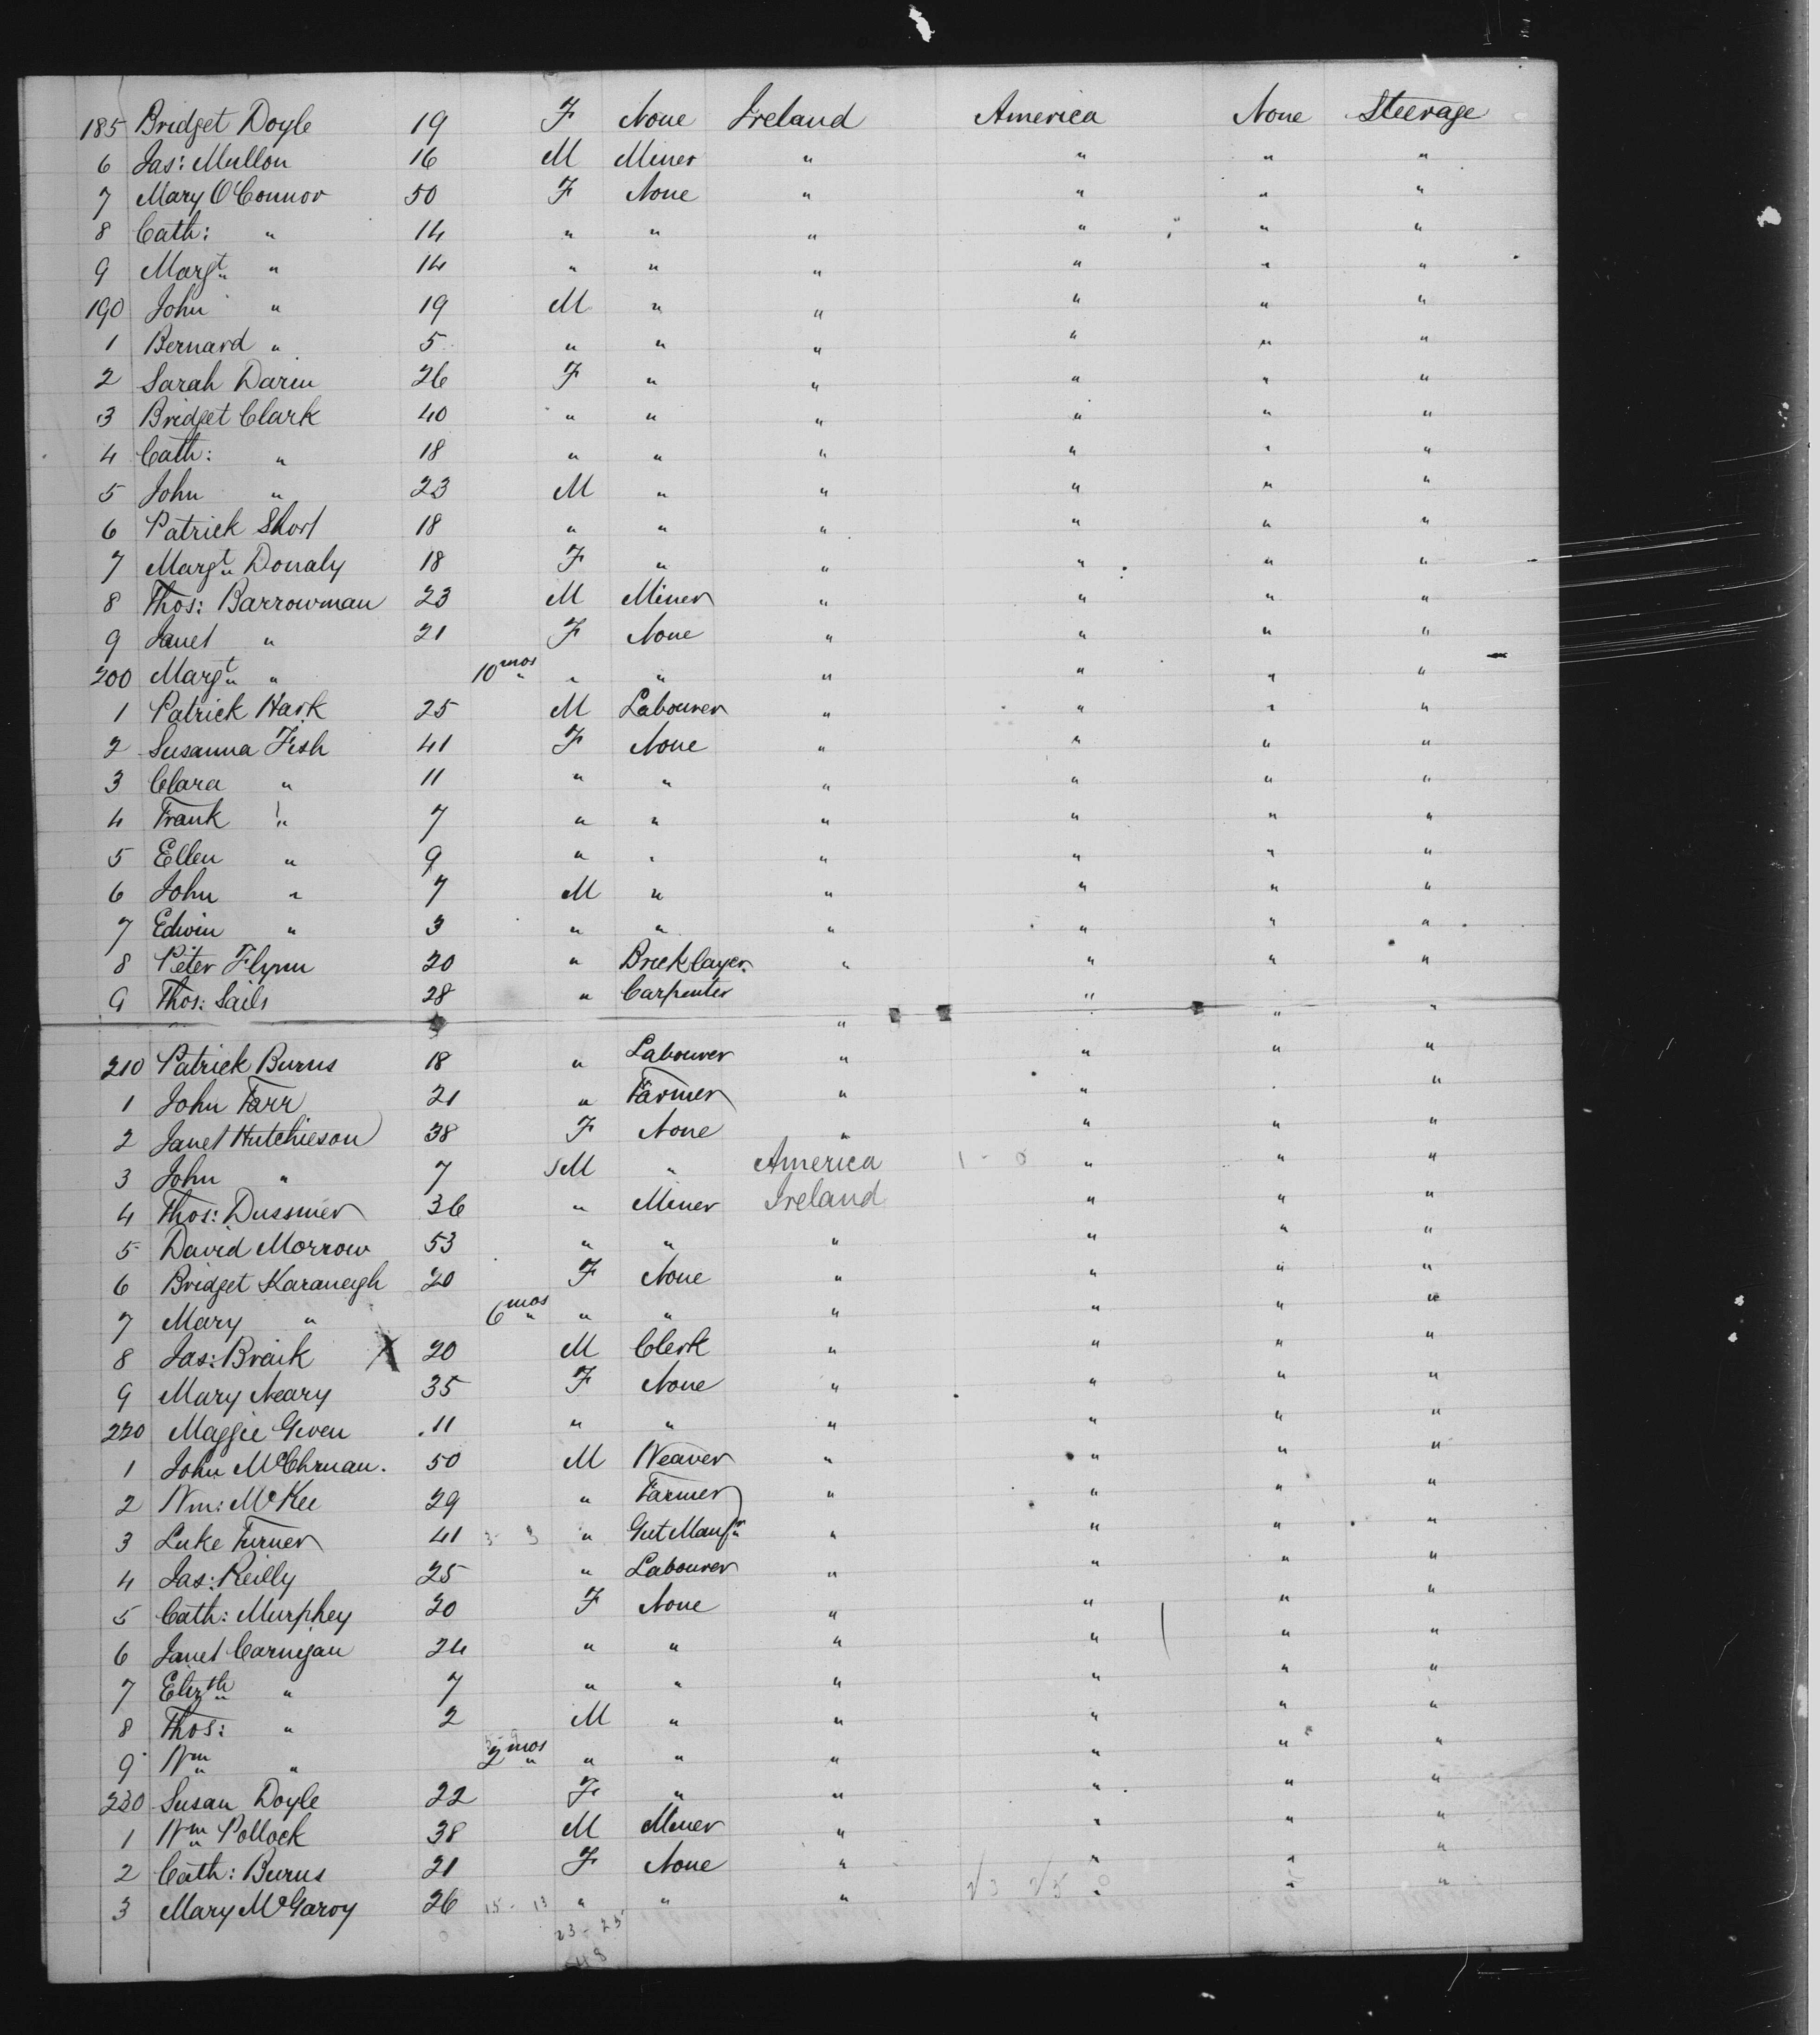 185 Bridget Doyle 19 F None Ireland America None Steerage
6 Jas: Mullon 16 M Miner " " " "
7 Mary O'Connor 50 F None " " " "
8 Cath: " 14 " " " " " "
9 Margt " 14 " " " " " "
190 John " 19 M " " " " "
1 Bernard " 5 " " " " " "
2 Sarah Darin 26 F " " " " "
3 Bridget Clark 40 " " " " " "
4 Cath: " 18 " " " " " "
5 John " 23 M " " " " "
6 Patrick Short 18 " " " " " "
7 Margt Donaly 18 F " " " " "
8 Thos: Barrowman 23 M Miner " " " "
9 Janet " 21 F None " " " "
200 Margt " 10 mos " " " " " "
1 Patrick Hark 25 M Labourer " " " "
2 Susanna Fish 41 F None " " " "
3 Clara " 11 " " " " " "
4 Frank " 7 " " " " " "
5 Ellen " 9 " " " " " "
6 John " 7 M " " " " "
7 Edwin " 3 " " " " " "
8 Peter Flynn 20 " Bricklayer " " " "
9 Thos: Sails 28 " Carpenter " " " "
210 Patrick Burns 18 " Labourer " " " "
1 John Farr 21 " Farmer " " "
2 Janet Hutchieson 38 F None " " " "
3 John " 7 M " America 1 - 0 " " "
4 Thos: Dussmer 36 " Miner Ireland " " "
5 David Morrow 53 " " " " " "
6 Bridget Karaneigh 20 F None " " " "
7 Mary " 6 mos " " " " " "
8 Jas: Braik X 20 M Clerk " " " "
9 Mary Neary 35 F None " " " "
220 Maggie Given 11 " " " " " "
1 John McChruan. 50 M Weaver " " " "
2 Wm: McKee 29 " Farmer " " " "
3 Luke Turner 41 3 - 3 " Gut Manfr " " " "
4 Jas: Reilly 25 " Labourer " " " "
5 Cath: Murphey 20 F None " " " "
6 Janet Carnegan 24 " " " " " "
7 Elizth " 7 " " " " " "
8 Thos: " 2 M " " " " "
9 Wm " 2 mos " " " " " "
230 Susan Doyle 22 F " " " " "
1 Wm Pollock 38 M Miner " " " "
2 Cath: Burns 21 F None " " " "
3 Mary McGarvy 26 15 - 13 " " " " " "
23 - 25
48